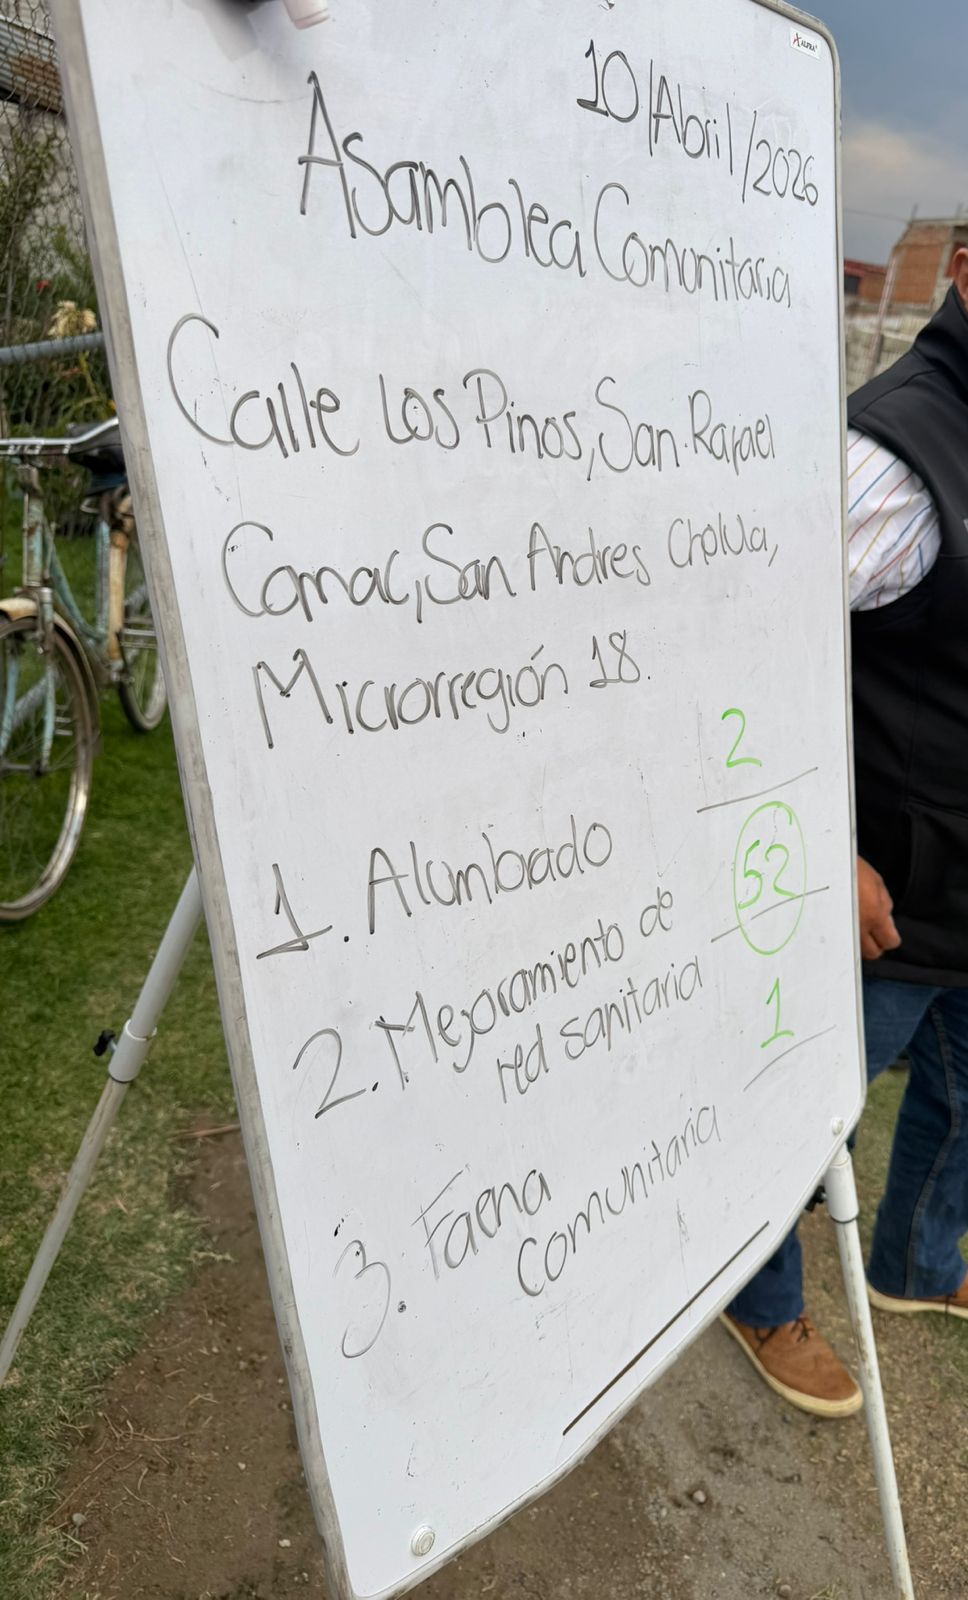 10/Abril/2026
Asamblea Comunitaria
Calle Los Pinos, San Rafael
Comac, San Andres Cholula,
Microrregión 18.
2
1. Alumbrado
52
2. Mejoramiento de
red sanitaria
1
3. Faena
comunitaria